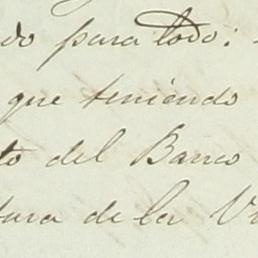 do para todo:
que teniendo
to del Banco
tura de la V